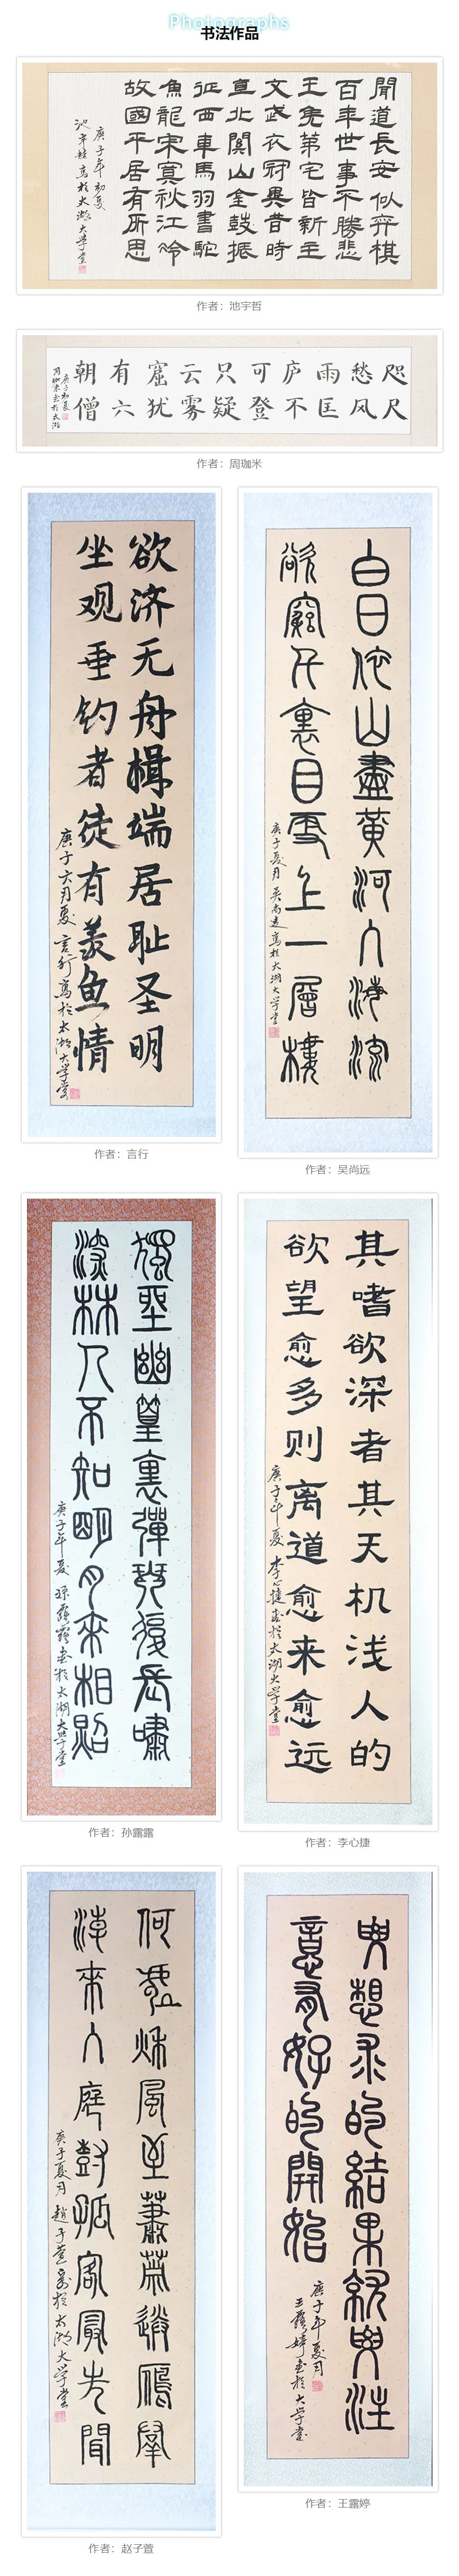 Photographs
书法作品
聞道長安似弈棋
百年世事不勝悲
王矦第宅皆新主
文武衣冠異昔時
直北關山金鼓振
征西車馬羽書馳
魚龍寂寞秋江冷
故國平居有所思
庚子年初夏
池宇哲寫於太湖大學堂
作者：池宇哲
咫尺
愁风
雨匡
庐不
可登
只疑
云雾
窟犹
有六
朝僧
庚子初夏
周珈米書於太湖
作者：周珈米
欲济无舟楫端居耻圣明
坐观垂钓者徒有羡鱼情
庚子六月夏 言行寫於太湖大学堂
作者：言行
白日依山盡黃河入海流
欲窮千里目更上一層樓
庚子夏月 吴尚远寫於太湖大学堂
作者：吴尚远
獨坐幽篁裏彈琴復長嘯
深林人不知明月來相照
庚子年夏 孙露露書於太湖大学堂
作者：孙露露
其嗜欲深者其天机浅人的
欲望愈多则离道愈来愈远
庚子年夏 李心捷書於太湖大学堂
作者：李心捷
何處秋風至蕭蕭送雁羣
朝來入庭樹孤客最先聞
庚子夏月 趙子萱寫於太湖大学堂
作者：赵子萱
要想求的結果就要注
意有好的開始
庚子年夏月
王露婷書於大学堂
作者：王露婷